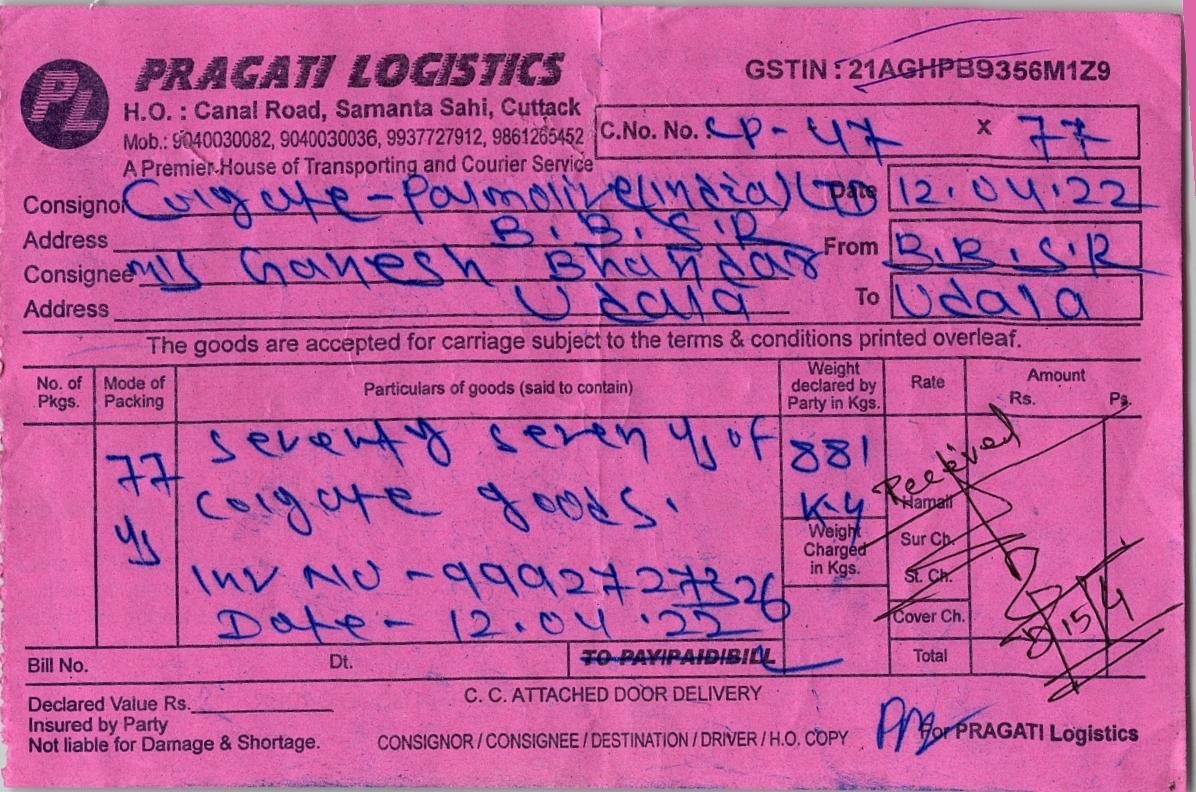 PL
PRAGATI LOGISTICS
GSTIN : 21AGHPB9356M1Z9
H.O. : Canal Road, Samanta Sahi, Cuttack
Mob.: 9040030082, 9040030036, 9937727912, 9861265452
A Premier House of Transporting and Courier Service
C.No. No. CP-47 x 77
Consignor Colgate-Palmolive(India) LTD Date 12.04.22
Address B.B.S.R From B.B.S.R
Consignee M/S Ganesh Bhandar
Address Udala To Udala
The goods are accepted for carriage subject to the terms & conditions printed overleaf.
No. of Pkgs. Mode of Packing Particulars of goods (said to contain) Weight declared by Party in Kgs. Rate Amount Rs. Ps.
77 seventy seven of 881 Kg
Colgate goods.
Received
Hamali
Weight Charged in Kgs.
Sur Ch.
St. Ch.
Inv No - 9992727326
Cover Ch.
Date - 12.04.22
15/4
Bill No. Dt. TO PAY/PAID/BILL Total
Declared Value Rs. C. C. ATTACHED DOOR DELIVERY
Insured by Party
Not liable for Damage & Shortage. CONSIGNOR / CONSIGNEE / DESTINATION / DRIVER / H.O. COPY For PRAGATI Logistics